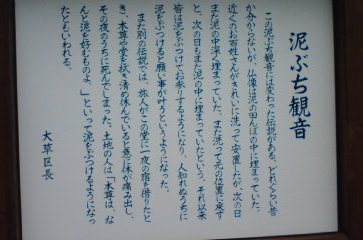 泥ぶち観音
この泥ぶち観音には変わった伝説がある。どれぐらい昔
か分からないが、仏像は泥の田んぼの中に埋まっていた。
近くのお百姓さんがきれいに洗って安置したが、次の日
また泥の中深く埋まっていた。また洗って元の位置に戻す
と、次の日もまた泥の中に埋まっていたという。それ以来
皆は泥をぶつけてお参りするようになり、人知れぬうちに
泥をぶつけると願い事が叶うというようになった。
また別の伝説では、旅人がこの堂に一夜の宿を借りたと
き、本尊や堂を拭き清め休んでいると急に体が痛み出し、
その夜のうちに死んでしまった。土地の人は「本尊は、な
んと泥を好むものよ。」といって泥をぶつけるようになっ
たともいわれる。
大草区長